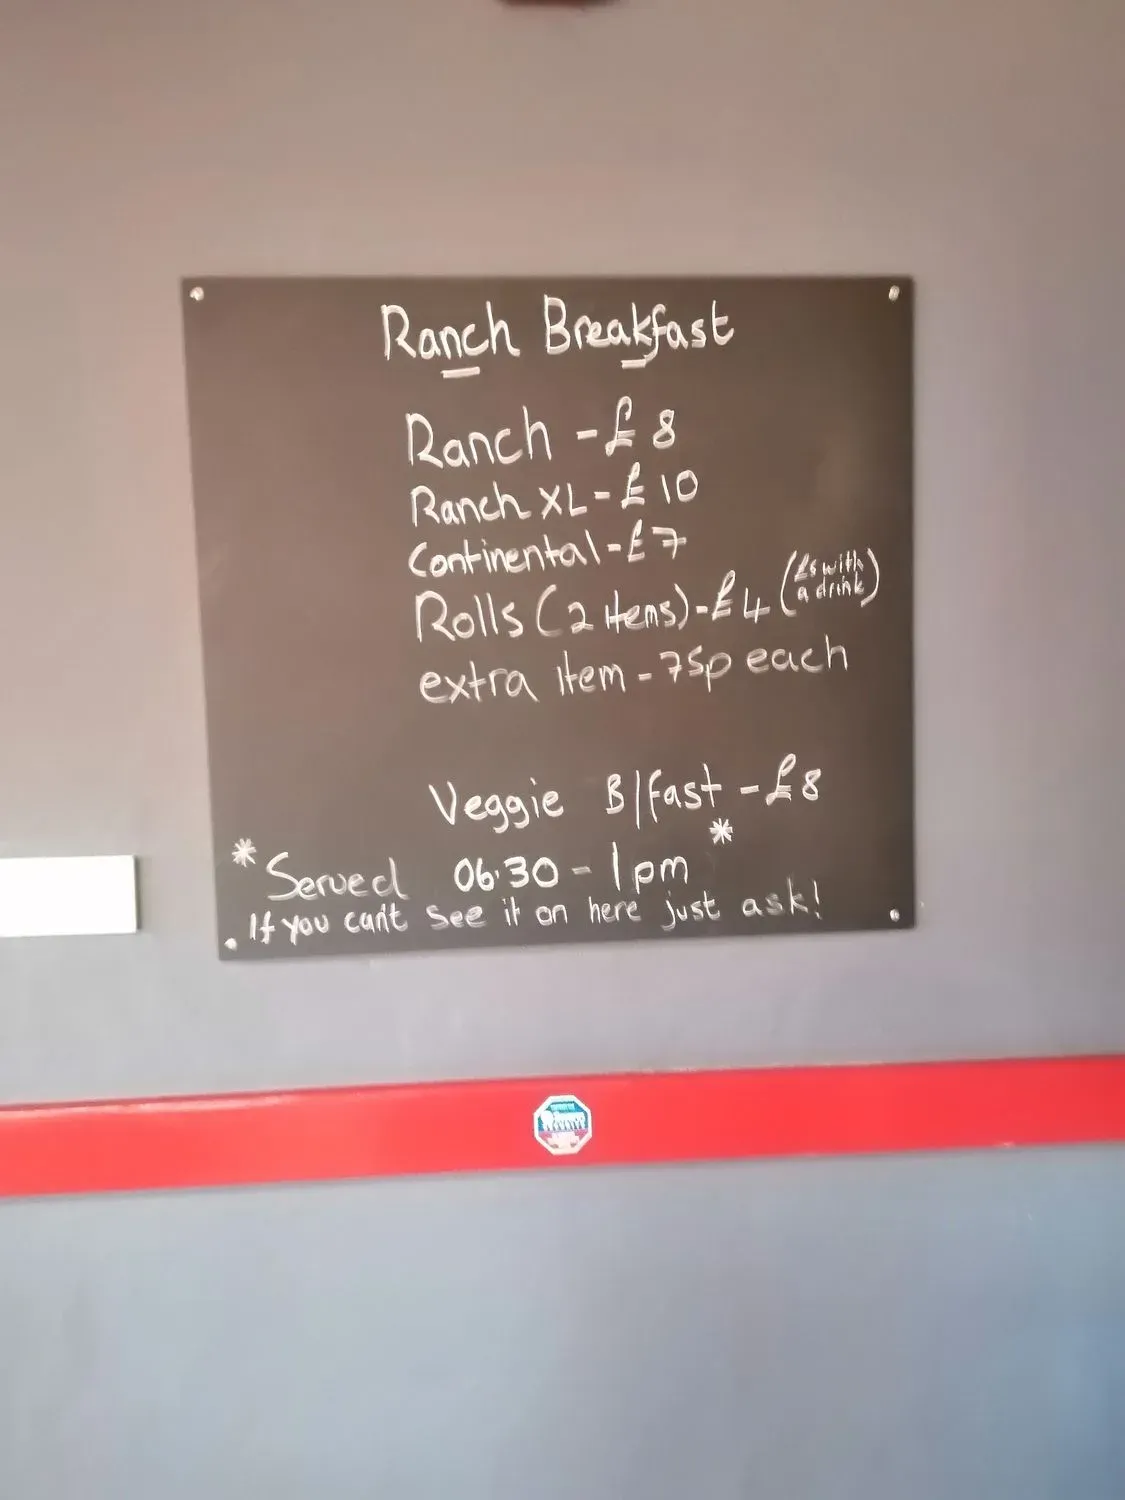 Ranch Breakfast
Ranch - £8
Ranch XL - £10
Continental - £7
Rolls (2 items) - £4 (£5 with
a drink)
extra item - 75p each
Veggie B/fast - £8
*Served 06.30 - 1pm*
If you can't see it on here just ask!